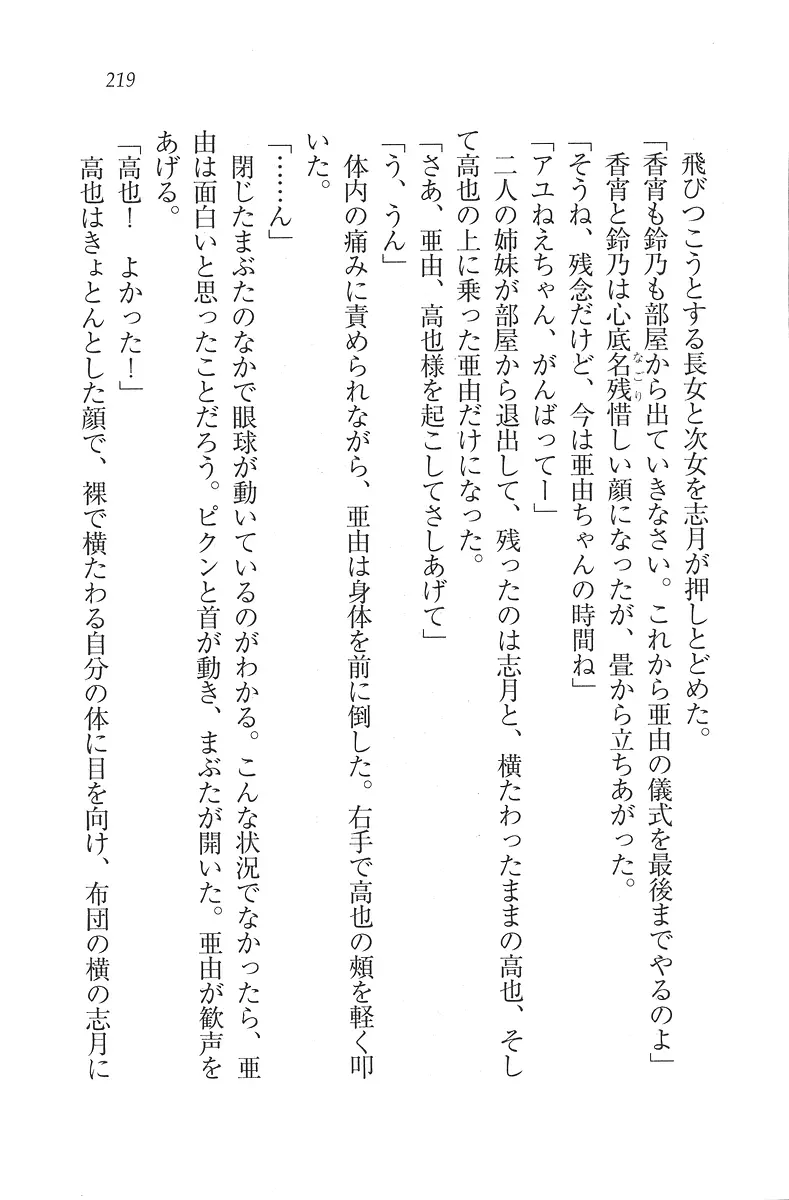 219
飛びつこうとする長女と次女を志月が押しとどめた。
「香宵も鈴乃も部屋から出ていきなさい。これから亜由の儀式を最後までやるのよ」
香宵と鈴乃は心底名残惜しい顔になったが、畳から立ちあがった。
なごり
「そうね、残念だけど、今は亜由ちゃんの時間ね」
「アユねえちゃん、がんばってー」
二人の姉妹が部屋から退出して、残ったのは志月と、横たわったままの高也、そし
て高也の上に乗った亜由だけになった。
「さあ、亜由、高也様を起こしてさしあげて」
「う、うん」
体内の痛みに責められながら、亜由は身体を前に倒した。右手で高也の頰を軽く叩
いた。
「……ん」
閉じたまぶたのなかで眼球が動いているのがわかる。こんな状況でなかったら、亜
由は面白いと思ったことだろう。ピクンと首が動き、まぶたが開いた。亜由が歓声を
あげる。
「高也！　よかった！」
高也はきょとんとした顔で、裸で横たわる自分の体に目を向け、布団の横の志月に